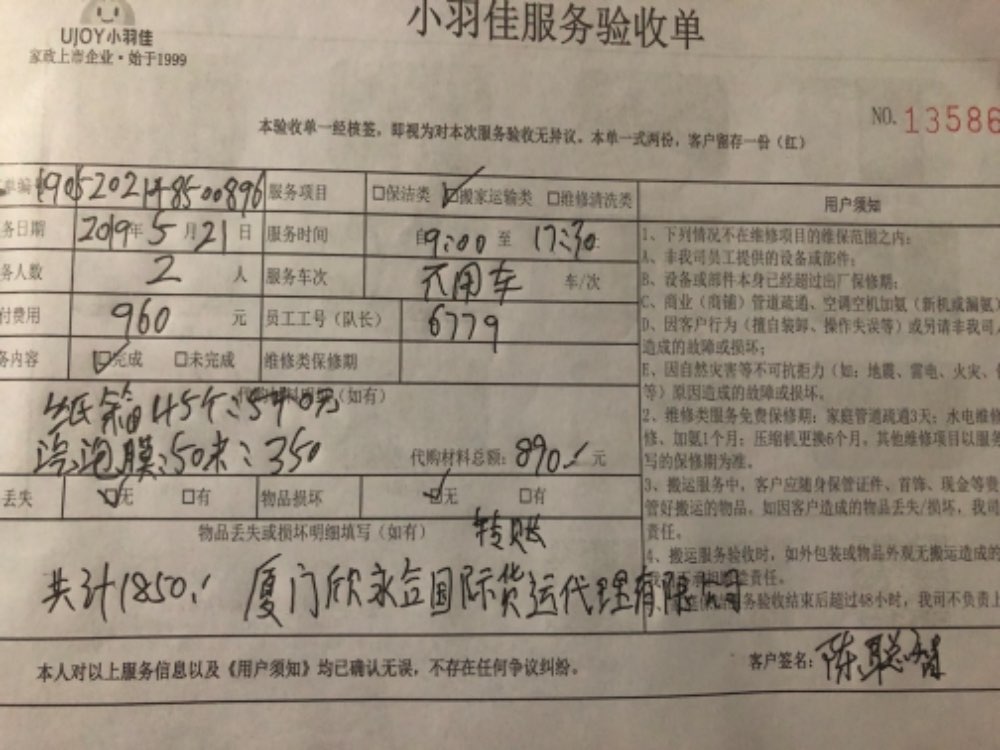 UJOY小羽佳
家政上市企业·始于1999
小羽佳服务验收单
NO. 13586
本验收单一经核签，即视为对本次服务验收无异议。本单一式两份，客户留存一份（红）
单编 服务项目 □保洁类 ☑搬家运输类 □维修清洗类 用户须知
务日期 2019年5月21日 服务时间 自9:00 至 17:30
务人数 2 人 服务车次 不用车 车/次
付费用 960 元 员工工号（队长） 6779
务内容 ☑完成 □未完成 维修类保修期
代购材料明细（如有）
纸箱45个:540元
汽泡膜:50米:350 代购材料总额: 890 元
丢失 ☑无 □有 物品损坏 ☑无 □有
物品丢失或损坏明细填写（如有） 转账
共计1850. 厦门欣永益国际货运代理有限公司
本人对以上服务信息以及《用户须知》均已确认无误，不存在任何争议纠纷。 客户签名: 陈聪
1、下列情况不在维修项目的维保范围之内:
A、非我司员工提供的设备或部件;
B、设备或部件本身已经超过出厂保修期;
C、商业（商铺）管道疏通、空调空机加氨（新机或漏氨
D、因客户行为（擅自装卸、操作失误等）或另请非我司
造成的故障或损坏;
E、因自然灾害等不可抗拒力（如: 地震、雷电、火灾、
等）原因造成的故障或损坏.
2、维修类服务免费保修期: 家庭管道疏通3天; 水电维
修、加氨1个月; 压缩机更换6个月。其他维修项目以服务
写的保修期为准。
3、搬运服务中，客户应随身保管证件、首饰、现金等贵
管好搬运的物品。如因客户造成的物品丢失/损坏，我司
责任。
4、搬运服务验收时，如外包装或物品外观无搬运造成的
责任。
务验收结束后超过48小时，我司不负责上